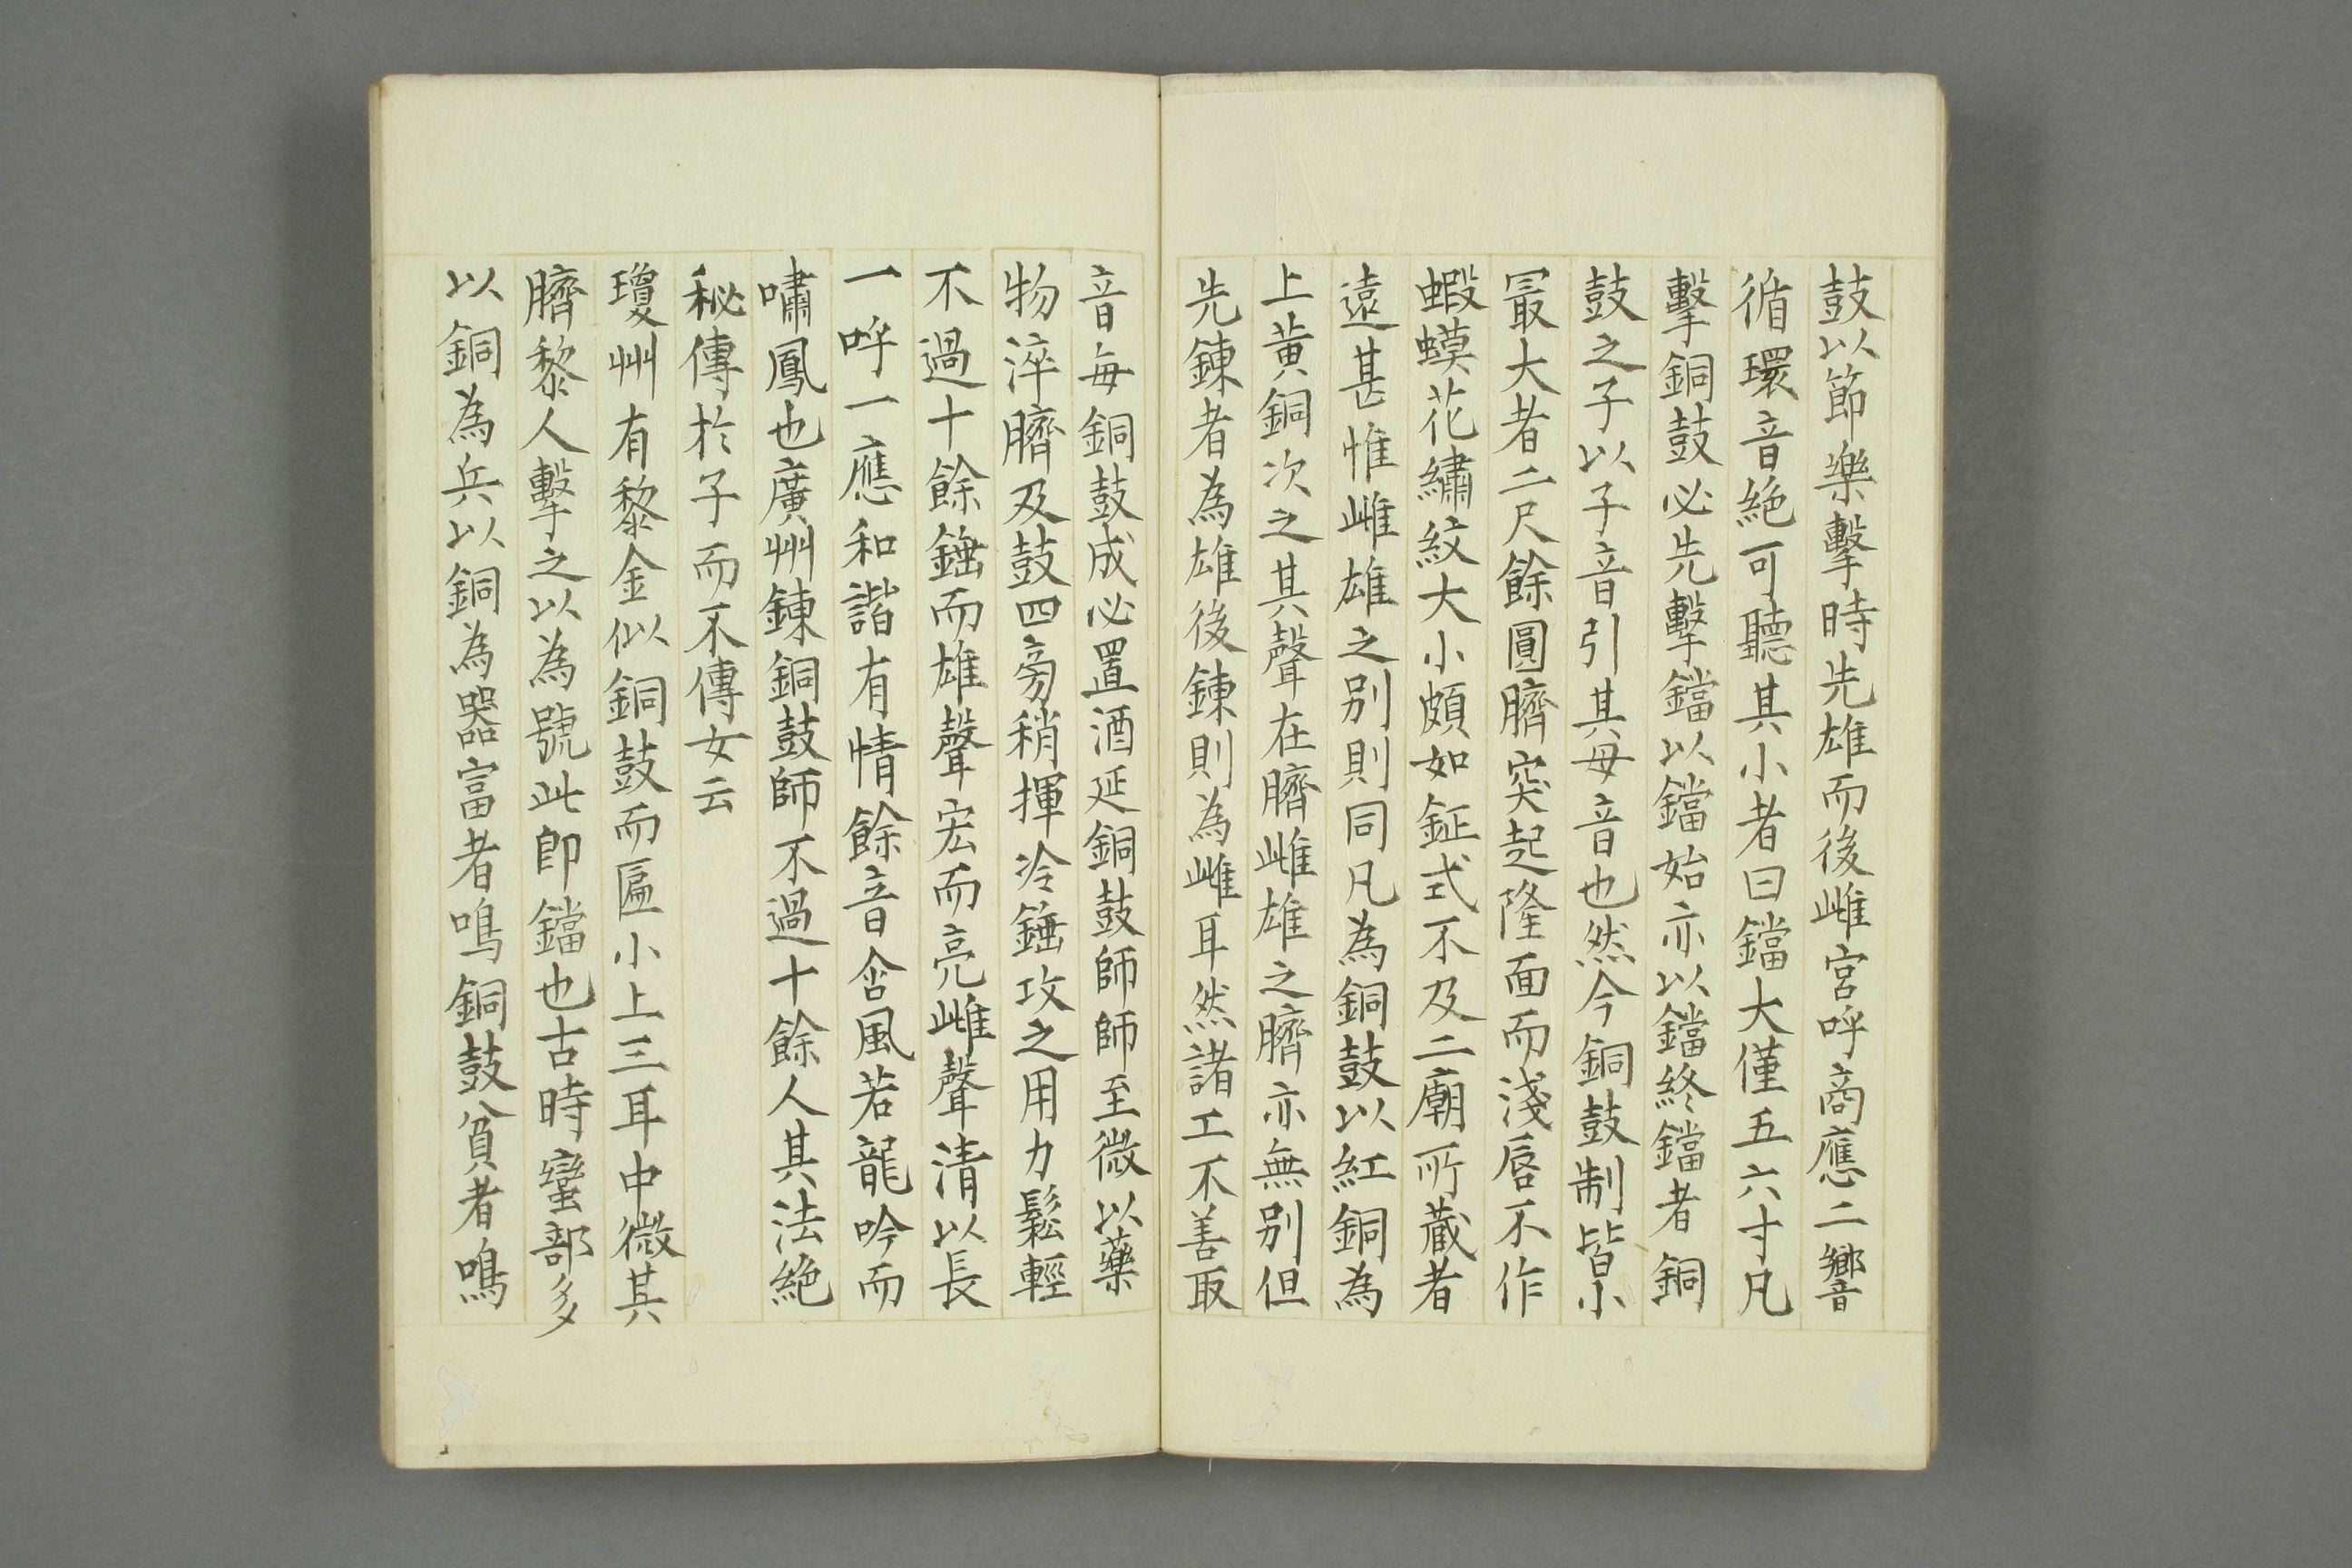 鼓以節樂擊時先雄而後雌宮呼商應二響
循環音絶可聽其小者曰鐺大僅五六寸凡
擊銅鼓必先擊鐺以鐺始亦以鐺終鐺者銅
鼓之子以子音引其母音也然今銅鼓制皆小
最大者二尺餘圓臍突起隆面而淺唇不作
蝦蟆花繡紋大小頗如鉦式不及二廟所藏者
遠甚惟雌雄之别則同凡為銅鼓以紅銅為
上黄銅次之其聲在臍雌雄之臍亦無别但
先鍊者為雄後鍊則為雌耳然諸工不善取
音每銅鼓成必置酒延銅鼓師師至微以藥
物淬臍及鼓四旁稍揮冷錘攻之用力鬆輕
不過十餘錘而雄聲宏而亮雌聲清以長
一呼一應和諧有情餘音含風若龍吟而
嘯鳳也廣州鍊銅鼓師不過十餘人其法絶
秘傳於子而不傳女云
瓊州有黎金似銅鼓而匾小上三耳中微其
臍黎人擊之以為號此即鐺也古時蠻部多
以銅為兵以銅為器富者鳴銅鼓貧者鳴